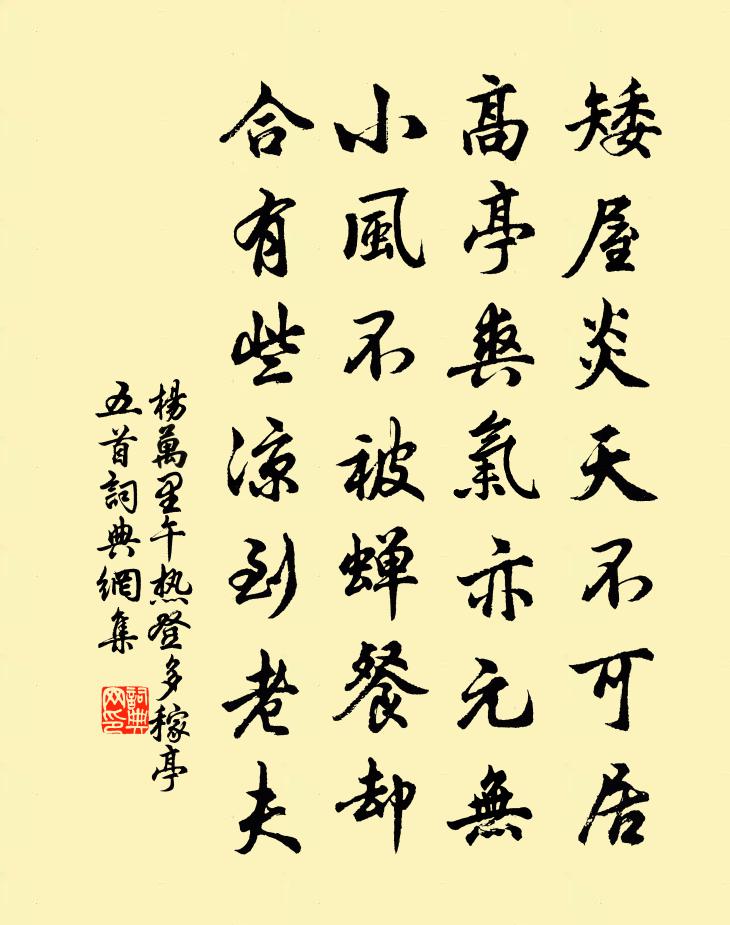 矮屋炎天不可居
高亭爽氣亦元無
小風不被蝉餐却
合有些凉到老夫
楊萬里午热登多稼亭
五首詞典網集
詞典
网印